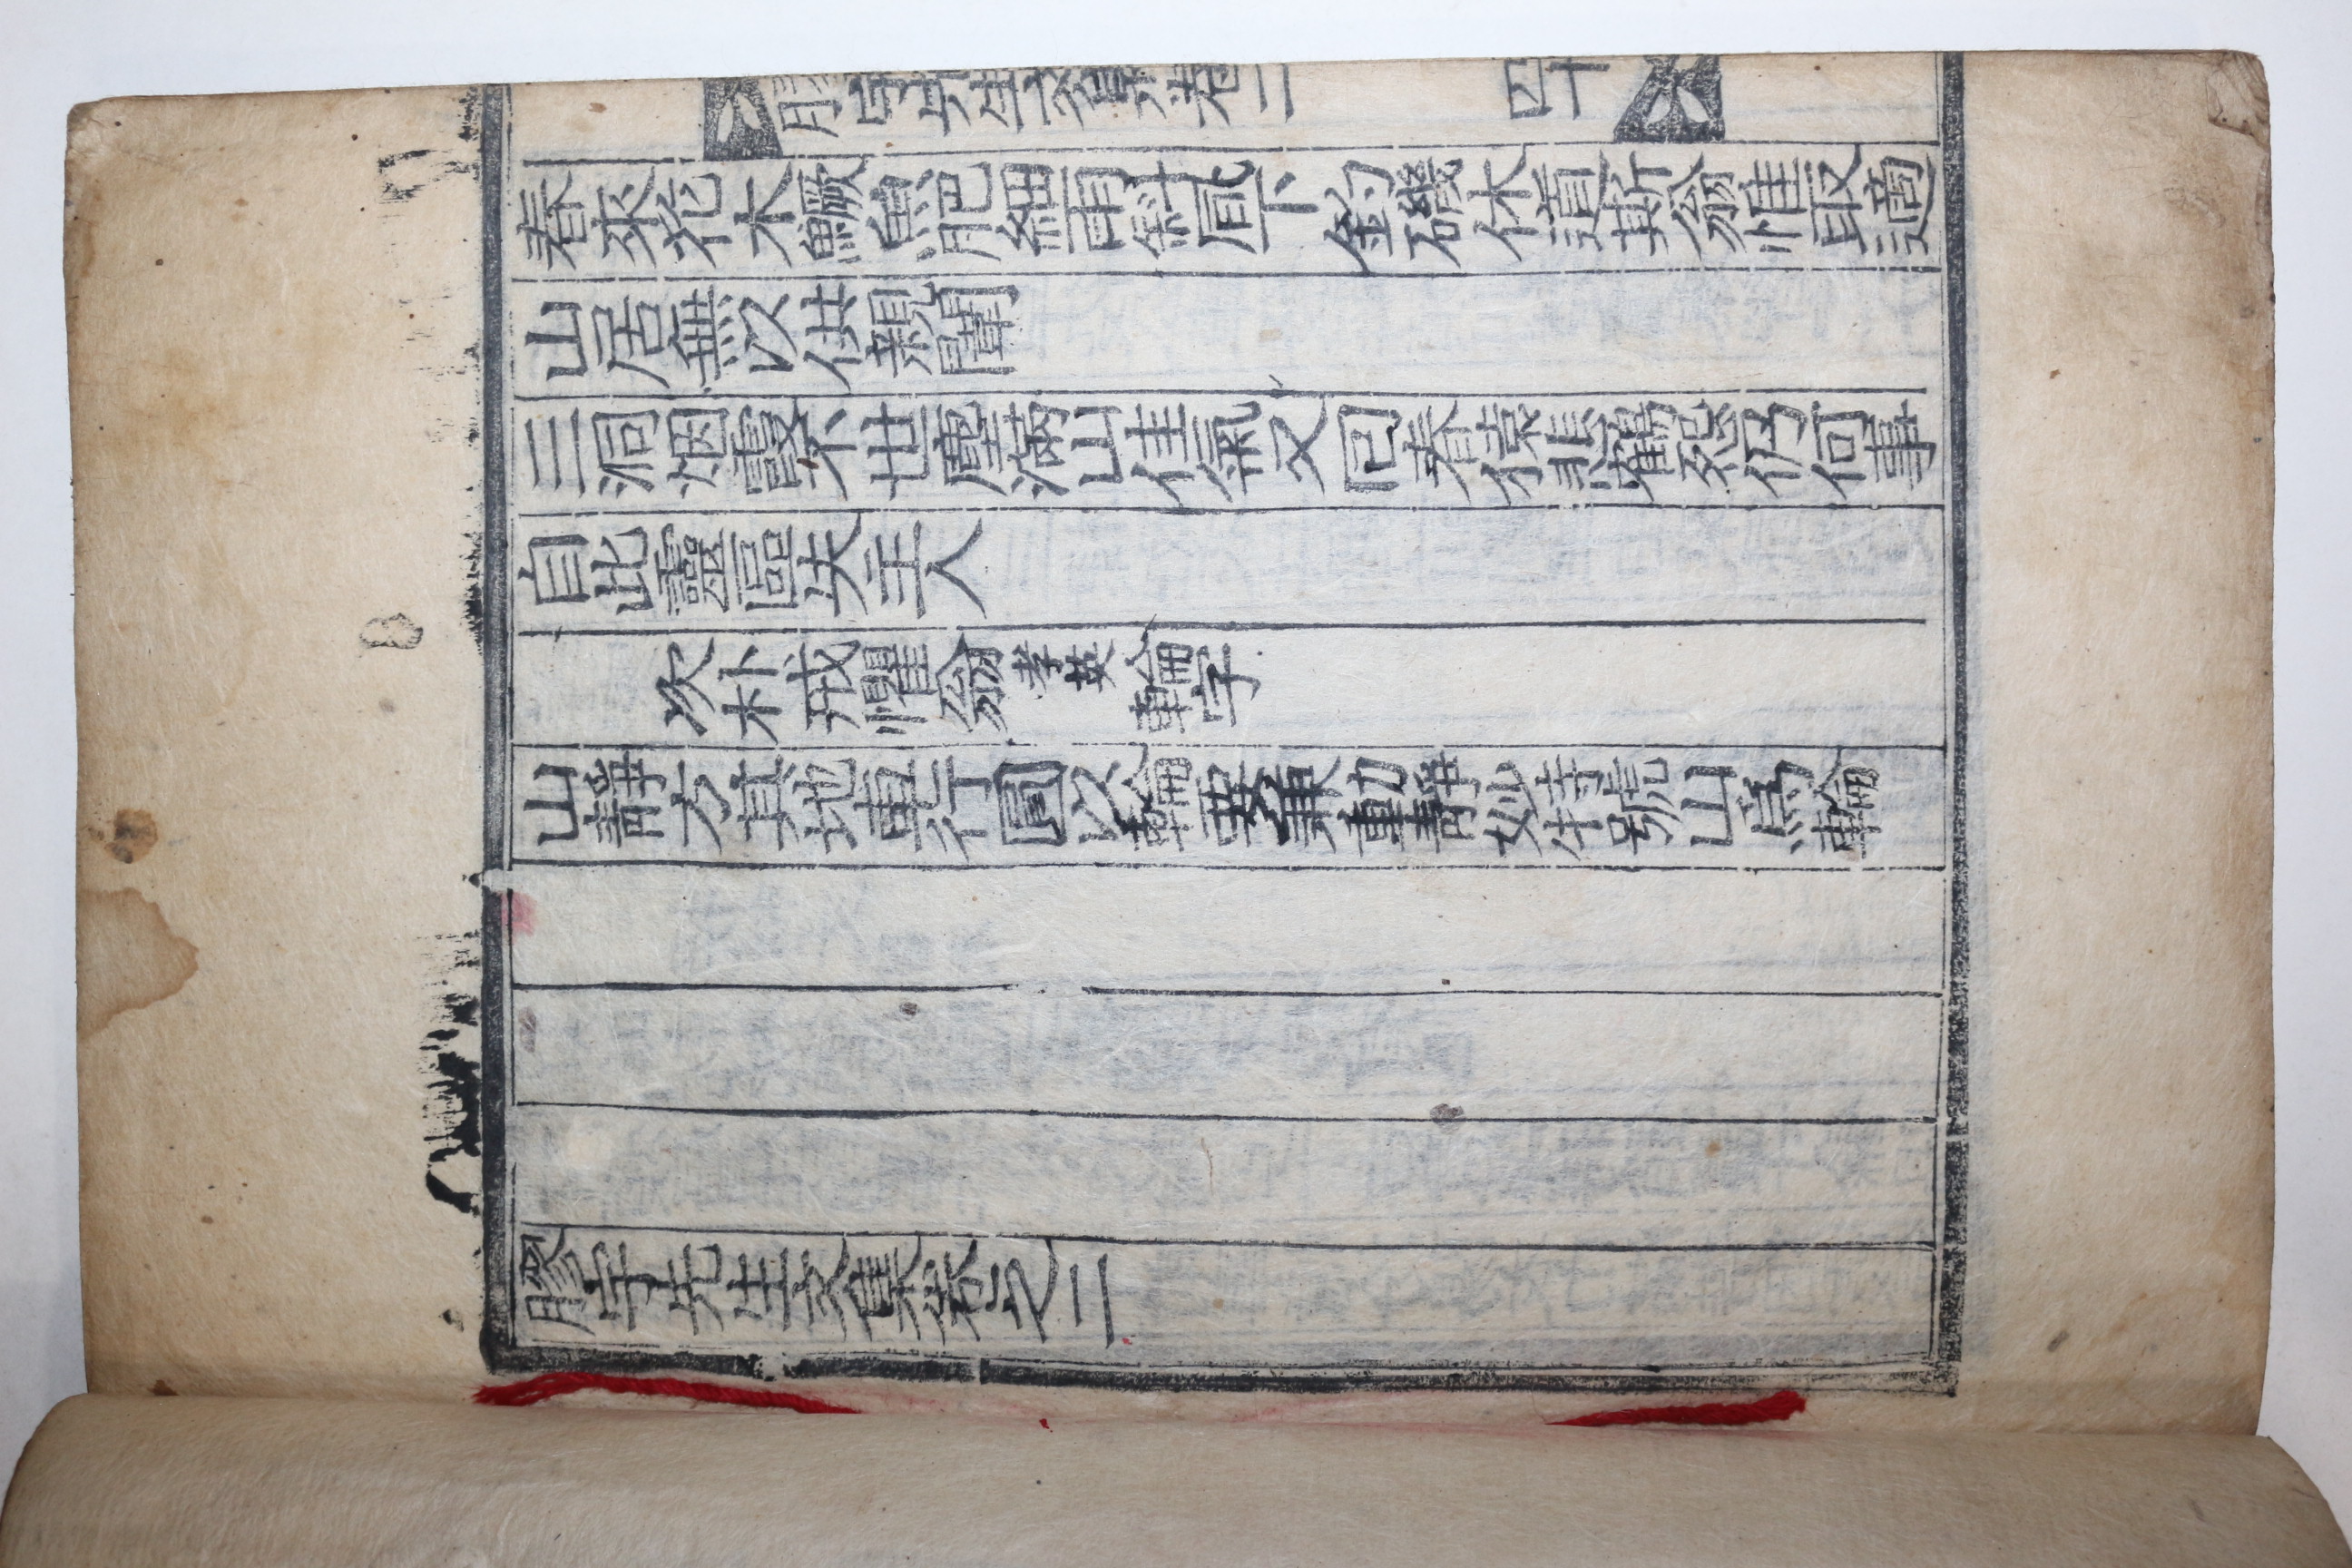 膠宇先生文集卷二 四十
春來花木鱖魚肥細雨斜風下釣磯休道斯翁惟取適
山居無以供親闈
三洞烟霞不世塵滿山佳氣又回春猿悲鶴怨仍何事
自此靈區失主人
次朴戒懼翁孝英輪字
山體方其地車行圓以輪要兼動靜妙特號山爲輪
膠宇先生文集卷之二